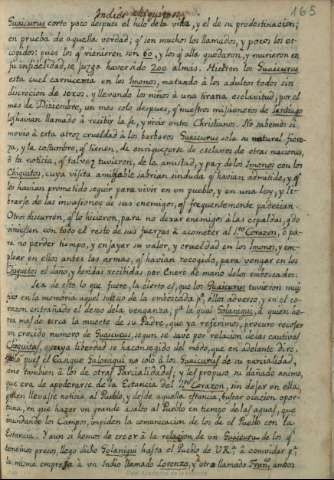 Indios Chiquitos 165
Guaicurus corto poco despues el hilo de la vida, y el de su predestinacion;
en prueba de aquella verdad, q' son muchos los llamados, y pocos los es-
cogidos: pues los q' vinieron son 60, y los q' alla quedaron, y murieron en
su infidelidad, se juzga haver sido 200 almas. Hicieron los Guaicurus
esta cruel carniceria en los Imonos, matando à los adultos todos sin
discrecion de sexos, y llevando los niños à una tirana esclavitud, por el
mes de Diziembre, un mes solo despues, q' nuestros missioneros de Santiago
los havian llamado à recibir la fe, y vivir entre Christianos. No sabemos si
movio à esta atroz crueldad à los barbaros Guaicurus sola su natural fiere-
za, y la costumbre, q' tienen, de enriquezerse de esclavos de otras naciones,
ò la noticia, q' talvez tuvieron, de la amistad, y paz de los Imonos con los
Chiquitos, cuya visita amigable sabrian sinduda q' havian admitido, y q'
les havian prometido seguir para vivir en un pueblo, y en una ley, y li-
brarse de las invasiones de sus enemigos, q' frequentemente padecian.
Otros discurren, q' lo hicieron, para no dexar enemigos à las espaldas, q'do
viniessen con todo el resto de sus fuerzas à acometer al S.mo Corazon, ò pa-
ra no perder tiempo, y ensayar su valor, y crueldad en los Imonos, y em-
plear en ellos antes las armas, q' havian recogido, para vengar en los
Chiquitos el daño, y heridas recibidas por Enero de mano de los emboscados.
Sea de esto lo que fuere, lo cierto es, que los Guaicurus tuvieron muy
fijo en la memoria aquel suceso de la emboscada p.a ellos adverso, y en el co-
razon entrañado el deseo de la venganza, p.a la qual Golaniqui, à quien de-
via mas de cerca la muerte de su Padre, que ya referimos, procuro recoger
un crecido numero de Guaicurus, segun se save por relacion de las cautivas
Chiquitas, cuya libertad se ha conseguido del modo, que en adelante dire,
la qual el Cazique
sino tambien à los de otras Parcialidades, y les propuso su dañado animo,
que era de apoderarse de la Estancia del S.mo Corazon, sin dejar en ella
quien llevasse noticia al Pueblo, y desde aquella estancia, buscar ocasion opor-
tuna, en que hazer un grande asalto al Pueblo en tiempo de las aguas, que
inundando los Campos, impiden la comunicacion de los de el Pueblo con la
Estancia. Y aun si hemos de creer à la relacion de un Guaicuru de los q'
tenemos presos, llego dicho Golaniqui hasta el Pueblo de à comvidar p.a
la misma empresa à un Indio llamado Lorenzo, y otro llamado Juan, ambos